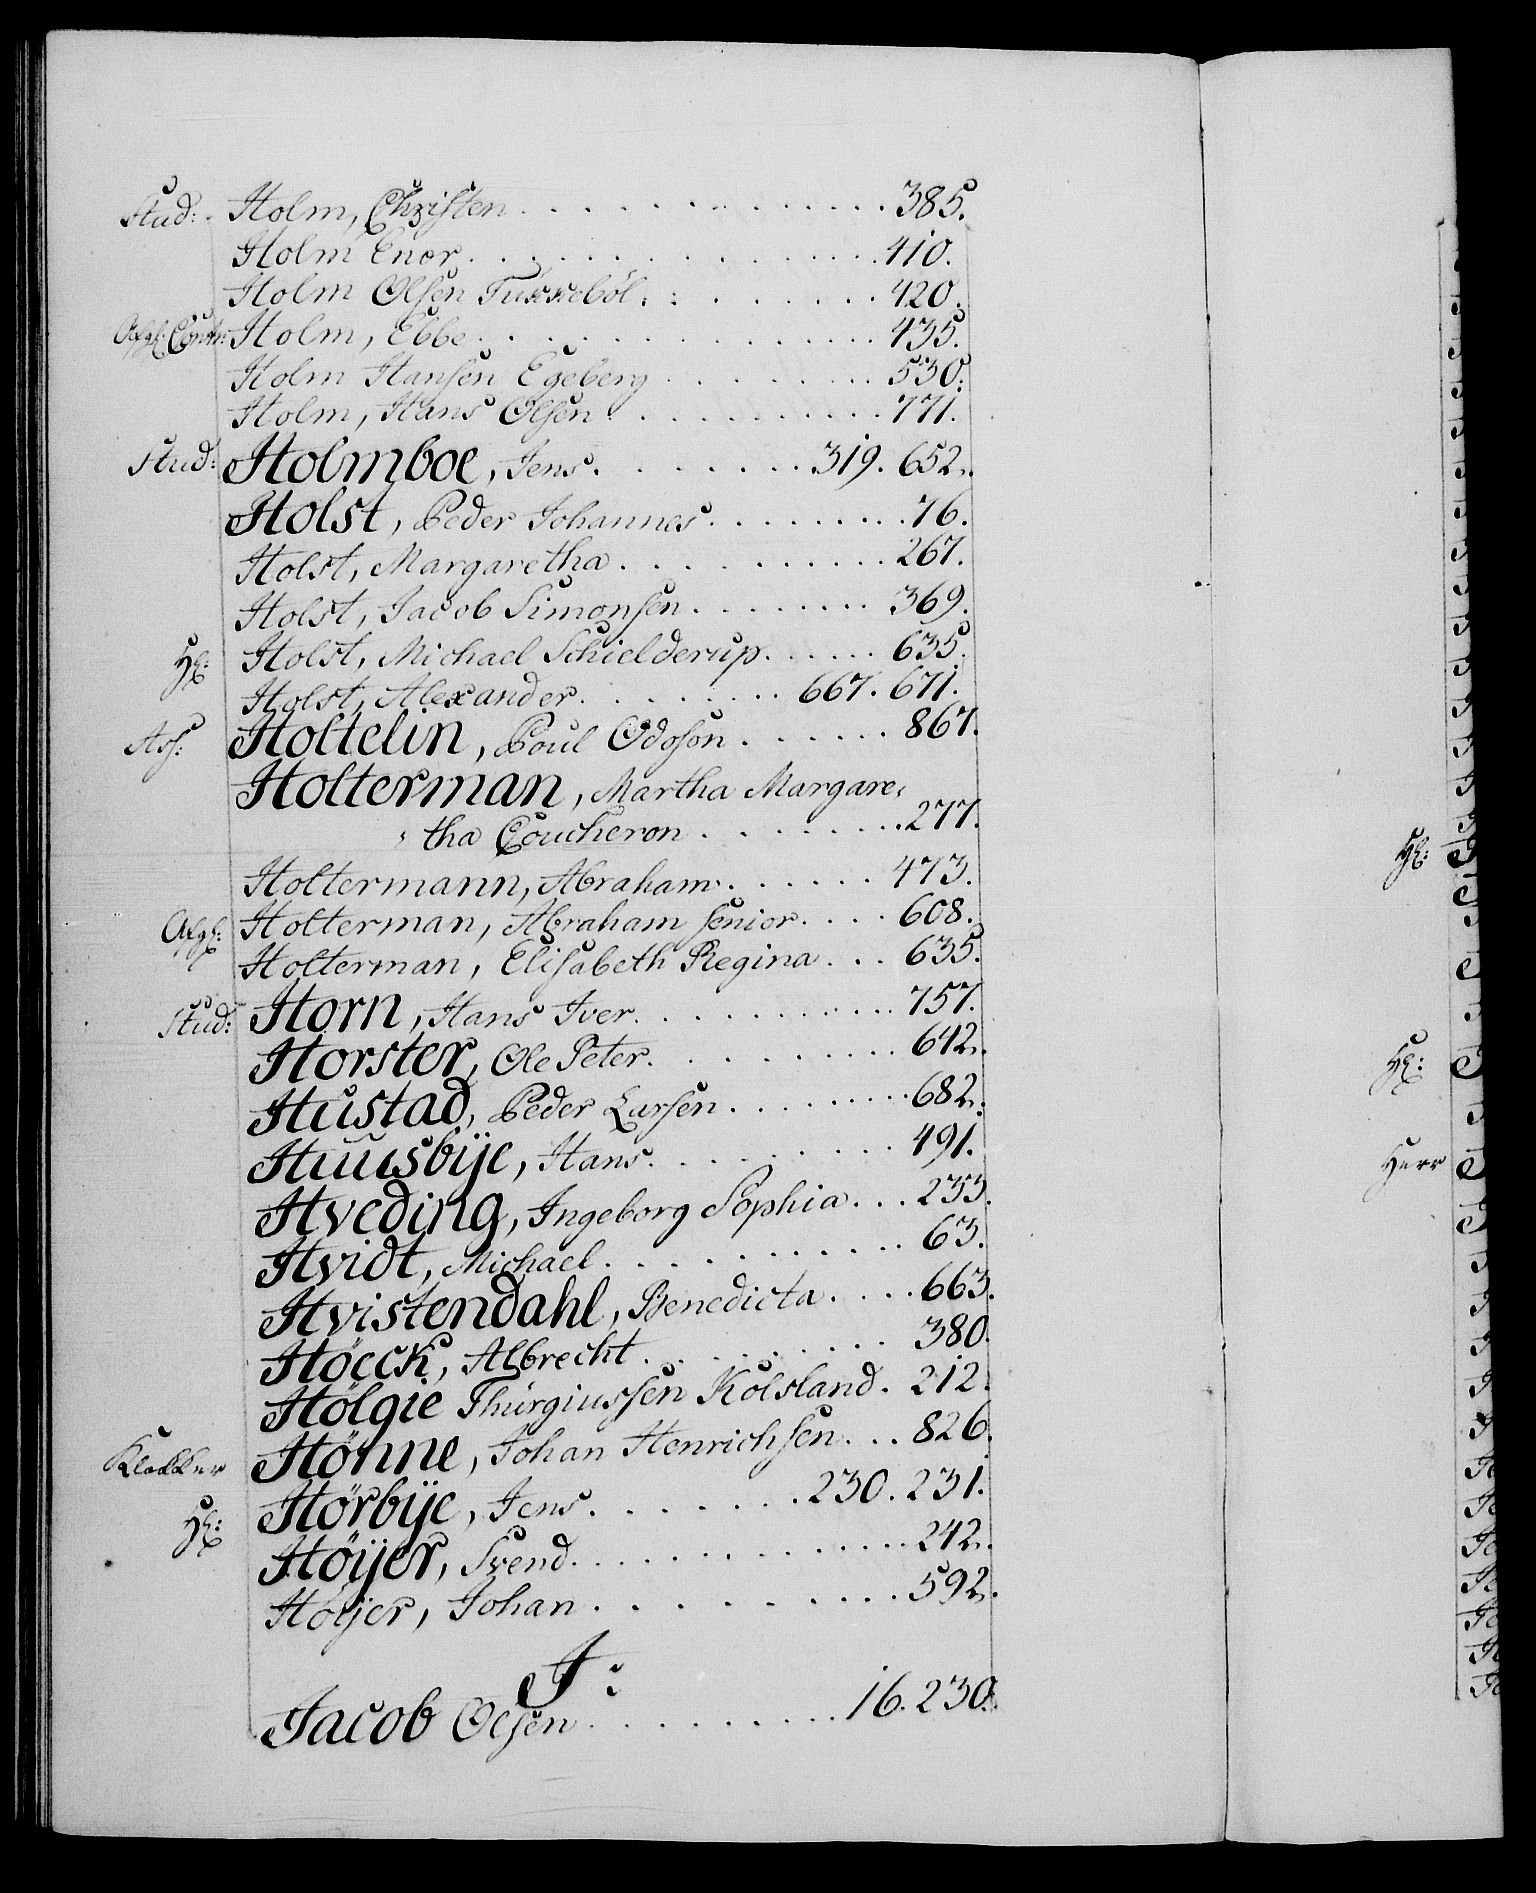 Stud: Holm, Christen . . . 385.
Holm Ener . . . 410.
Holm Olsen Tüxxeböl . . . 420.
Afgl: Contr: Holm, Ebbe . . . 435.
Holm Hansen Egeberg . . . 530.
Holm, Hans Olsen . . . 771.
Stud: Holmboe, Jens . . . 319. 652.
Holst, Peder Johannes . . . 76.
Holst, Margaretha . . . 267.
Holst, Jacob Simonsen . . . 369.
Hr: Holst, Michael Schielderup . . . 635.
Holst, Alexander . . . 667. 671.
Ass: Holtelin, Poul Odoson . . . 867.
Holterman, Martha Margare,
tha Coucheron . . . 277.
Holtermann, Abraham . . . 473.
Afgl: Holterman, Abraham senior . . . 608.
Holterman, Elisabeth Regina . . . 635.
Stud: Horn, Hans Iver . . . 757.
Horster, Ole Peter . . . 642.
Hustad, Peder Larsen . . . 682.
Huusbÿe, Hans . . . 491.
Hveding, Ingeborg Sophia . . . 233.
Hvidt, Michael . . . 63.
Hvistendahl, Benedicta . . . 663.
Höeck, Albrecht . . . 380.
Hölgie Thurgiussen Kolsland . 212.
Klokker Hönne, Johan Henrichsen . . . 826.
Hr: Hörbÿe, Jens . . . 230. 231.
Höÿer, Svend . . . 242.
Höÿer, Johan . . . 592.
J:
Jacob Olsen . . . 16. 230.
Hr:
Hr:
Herr